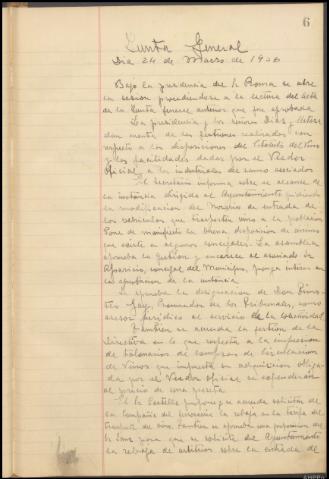 6
Junta General
Dia 24 de Marzo de 1936
Bajo la presidencia del Sr Roma se abre
la sesion procediendose a la lectura del acta
de la Junta general anterior que fue aprobada
La presidencia y los señores Dias y
dan cuenta de las gestiones realizadas con
respecto a las disposiciones del Estatuto del Vino
y las facilidades dadas por el Veedor
Oficial, a los industriales del ramo asociados
El Secretario informa sobre el alcance de
la instancia dirigida al Ayuntamiento pidiendo
la modificacion del horario de entrada de
los vehiculos que trasporten vino a la poblacion
Pone de manifiesto la buena disposicion de animo
que existe a algunos concejales. La asamblea
aprueba la gestion y encarece al asociado Sr
Aparicio, concejal del Municipio, ponga interes en
la aprobacion de la instancia
Se aprueba la designacion de Don
Gay, Procurador de los Tribunales, como
asesor juridico al servicio de la colectividad
Tambien se acuerda la gestion de la
Directiva en lo que respecta a la impresion
de talonarios de compras de circulacion
de Vinos que impuesta su adquisicion obliga-
da por el Veedor Oficial se expenderan
al precio de una peseta
El Sr Castello propone y se acuerda solicitar de
la Compañia del ferrocarril la rebaja en la tarifa del
trasporte del vino. Tambien se aprueba una proposicion del
Sr Sanz para que se solicite del Ayuntamiento
la rebaja de arbitrios sobre la entrada de